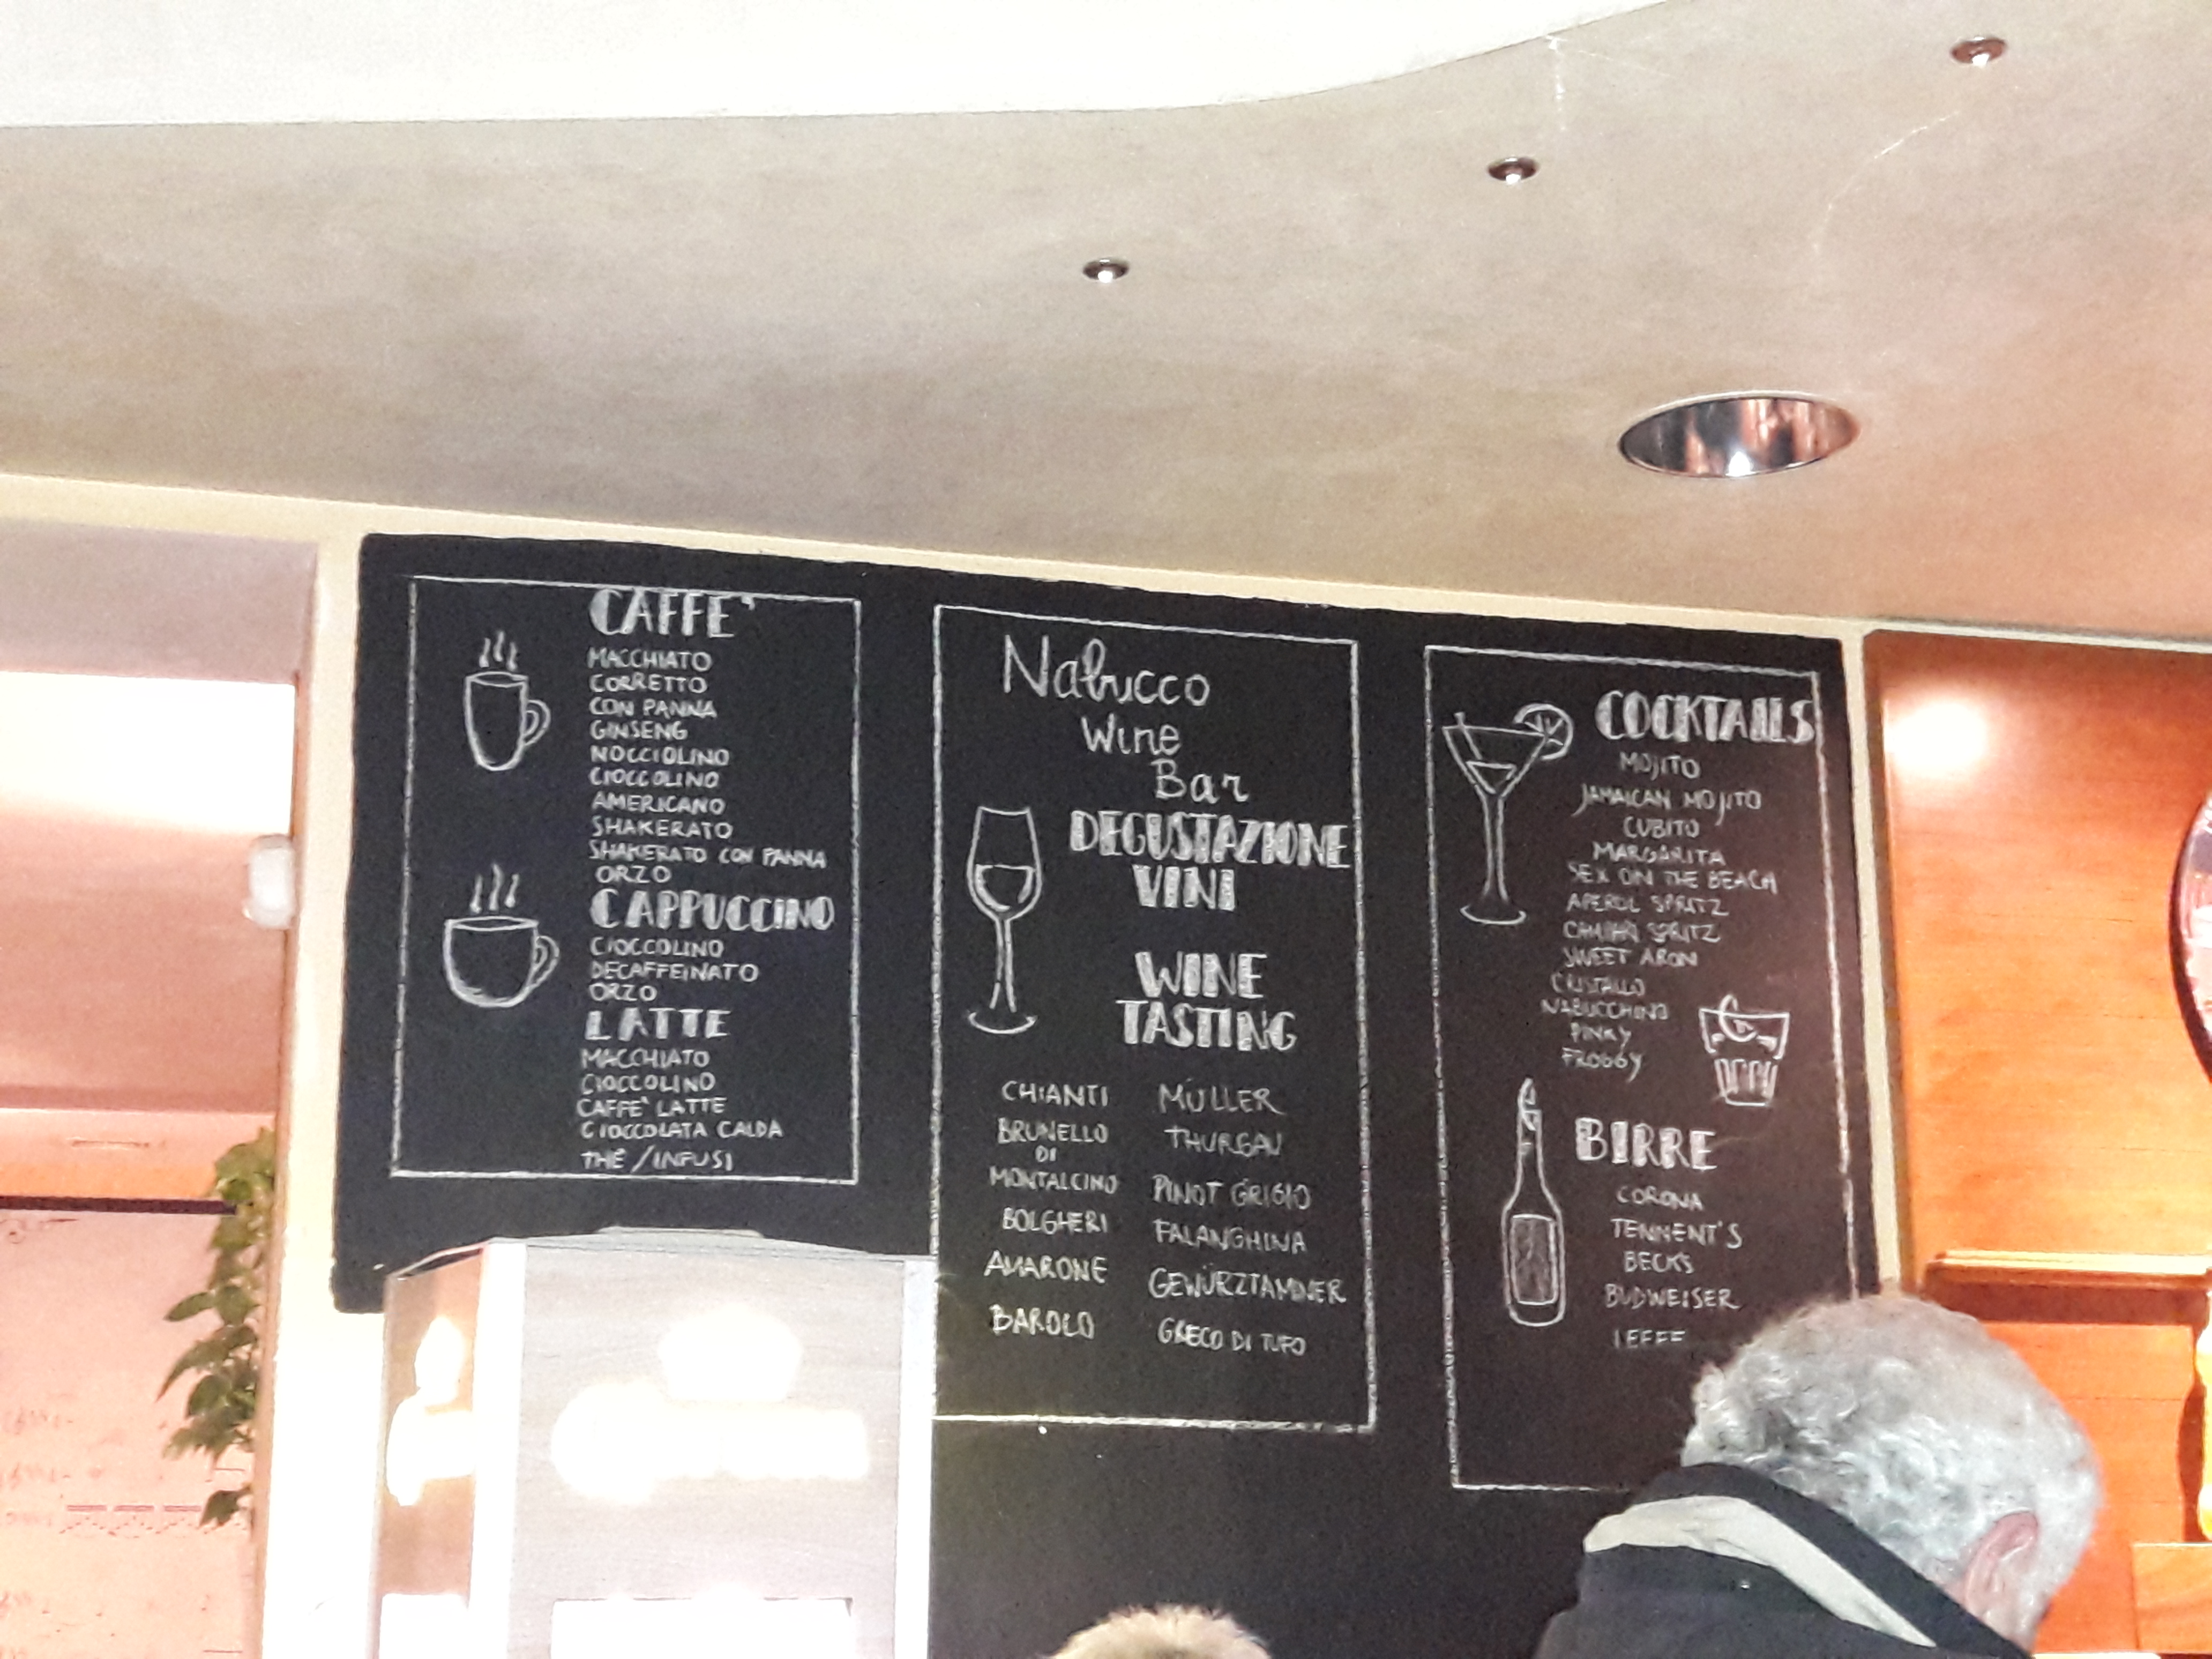 CAFFE'
MACCHIATO
CORRETTO
CON PANNA
GINSENG
NOCCIOLINO
CIOCCOLINO
AMERICANO
SHAKERATO
SHAKERATO CON PANNA
ORZO
CAPPUCCINO
CIOCCOLINO
DECAFFEINATO
ORZO
LATTE
MACCHIATO
CIOCCOLINO
CAFFE' LATTE
CIOCCOLATA CALDA
THE / INFUSI
Nabucco
Wine
Bar
DEGUSTAZIONE
VINI
WINE
TASTING
CHIANTI
BRUNELLO
DI
MONTALCINO
BOLGHERI
AMARONE
BAROLO
MÜLLER
THURGAU
PINOT GRIGIO
FALANGHINA
GEWÜRZTAMINER
GRECO DI TUFO
COCKTAILS
MOJITO
JAMAICAN MOJITO
CUBITO
MARGARITA
SEX ON THE BEACH
APEROL SPRITZ
CAMPARI SPRITZ
SWEET ARON
CRISTALLO
NABUCCHINO
PINKY
FROGGY
BIRRE
CORONA
TENNENT'S
BECKS
BUDWEISER